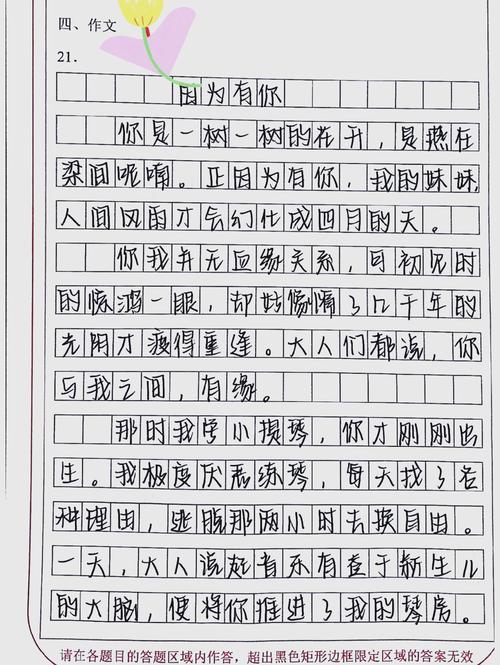 四、作文
21.
因为有你
你是一树一树的花开，是燕在
梁间呢喃。正因为有你，我的妹妹，
人间风雨才会幻化成四月的天。
你我并无血缘关系，可初见时
的惊鸿一眼，却好像隔了几千年的
光阴才换得重逢。大人们都说，你
与我之间，有缘。
那时我学小提琴，你才刚刚出
生。我极度厌恶练琴，每天找了各
种理由，逃脱那两小时去换自由。
一天，大人说起音乐有益于新生儿
的大脑，便将你推进了我的琴房。
请在各题目的答题区域内作答，超出黑色矩形边框限定区域的答案无效